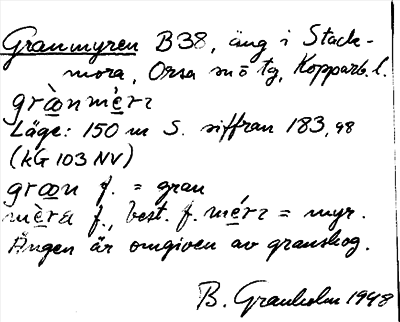 Granmyren B38, äng i Stack-
mora, Orsa sn o tg, Kopparb. l.
Läge: 150 m S. siffran 183,98
(kG 103 NV)
f. = gran
f., best. f. = myr.
Ängen är omgiven av granskog.
B. Granholm 1948